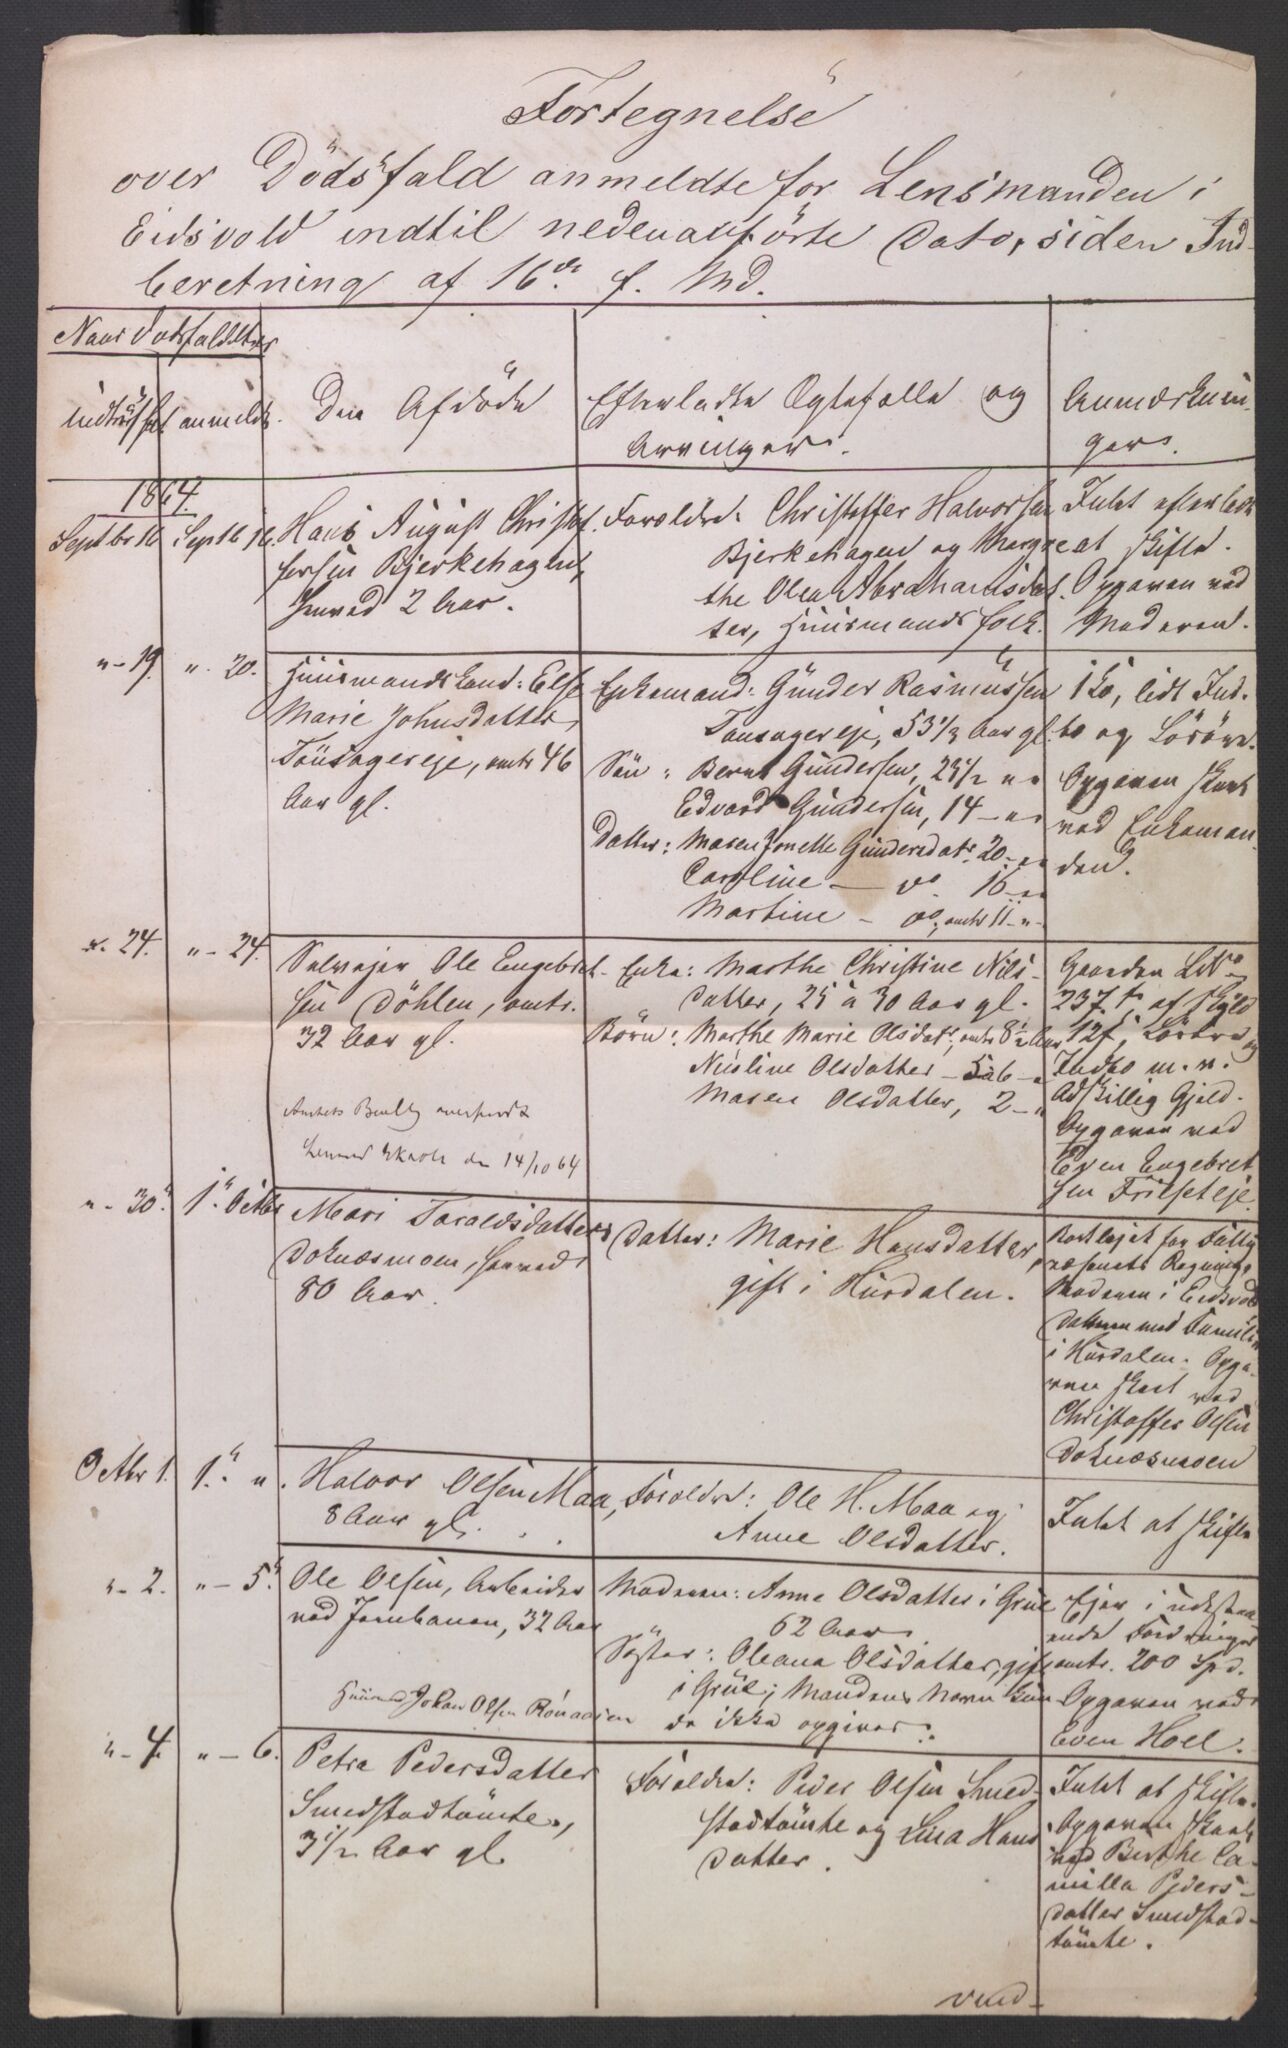 Fortegnelse
over Dödsfald anmeldte for Lensmanden i
Eidsvold indtil nedenanförte Dato, siden Ind-
beretning af 16de f. Md.
Naar Dødsfaldet er
indtruffet anmeldt.
Den Afdöde
Efterladte Ægtefælle og
Arvinger.
Anmærknin-
ger.
1864.
Septbr 16 Septb 16.
Hans August Christof-
fersen Bjerkehagen,
henved 2 Aar.
Forældre: Christoffer Halvorsen
Bjerkehagen og Margre-
the Olea Abrahamsdat-
ter, Huusmandsfolk.
Intet efterladt
at skifte.
Opgaven ved
Moderen.
"- 19. "- 20.
Huusmandskone: Else
Marie Johnsdatter,
Tönsagereje, omtr 46
Aar gl.
Enkemand: Gunder Rasmussen
Tonsagereje, 53 1/3 Aar gl.
Sön: Bernt Gundersen, 23 1/2 " "
Edvard Gundersen, 14 - " "
Datter: Maren Jonette Gundersdatr 20 - " "
Caroline - do 16 - " "
Martine - do, omtr 11 - " -
1 Ko, lidt Ind-
bo og Lösöre.
Opgaven skeet
ved Enkeman-
den.
"- 24. "- 24.
Selvejer Ole Engebret-
sen Döhlen, omtr.
32 Aar gl.
Enke: Marthe Christine Nils-
datter, 25 à 30 Aar gl.
Börn: Marthe Marie Olsdatr, omtr 8 1/2 Aar
Nicoline Olsdatter - 5 à 6 - "
Maren Olsdatter, 2 - "
Gaarden LNo
237 af Skyld
Lösöre og
Indbo m. v.
Adskillig Gjeld.
Opgaven ved
Even Engebret-
sen Frilseteje.
den 14/10 64
"- 30. 1. Octbr
Mari Taraldsdatter
Doknæsmoen, henved
80 Aar.
Datter: Marie Hansdatter,
gift i Hurdalen.
Bortlejet for Fattig-
væsenets Regning.
Moderen i Eidsvold
Datteren med Familie
i Hurdalen. Opga-
ven skeet ved
Christoffer Olsen
Doknæsmoen
Octbr 1. 1. "
Halvor Olsen Maa,
8 Aar gl.
Forældre: Ole H. Maa og
Anne Olsdatter.
Intet at skifte
"- 2. "- 5.
Ole Olsen, Arbeider
ved Jernbanen, 32 Aar
Huusmd Johan Olsen Rönaasen
Moderen: Anne Olsdatter i Grue
62 Aar.
Søster: Oleana Olsdatter, gift
i Grue; Mandens Navn kun-
de ikke opgives.
Ejer i udestaa-
ende Fordringer
omtr. 200 Spd.
Opgaven ved
Even Hoel.
"- 4. "- 6.
Petra Pedersdatter
Smedstadtömte,
3 1/2 Aar gl.
Forældre: Peder Olsen Smed-
stadtömte og Lina Hans-
datter.
Intet at skifte.
Opgaven skeet
ved Berthe Ca-
milla Peders-
datter Smedstad-
tömte.
vend-